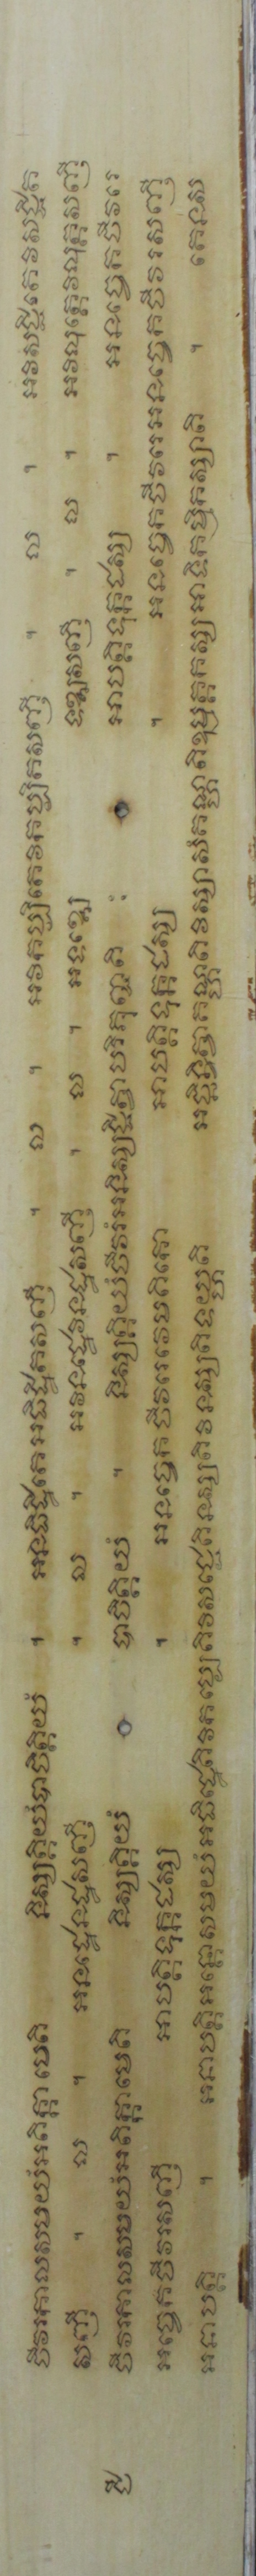 ចីវរកាលសមយំអតិក្កាមេតិ និស្សគ្គិយំបាចិត្តិយំ ។ អនធិដ្ឋិតេអធិដ្ឋិតសញី ។ ល ។ អវិកប្បិតេវិកប្បិតសញី ។ ល ។ អវិសជ្ជិតេវិសជ្ជិត
សញី ។ ល ។ អនដ្ឋេនដ្ឋសញី ។ ល ។ អវិនដ្ឋេវិនដ្ឋសញី ។ ល ។ អទឌ្ឍេ ទឌ្ឍសញី ។ ល ។ អវិលុត្តេវិលុត្តសញី
ចីវរកាលសមយំអតិក្កាមេតិ និស្សគ្គិយំ បាចិត្តិយំ ។ និស្សគ្គិយំចីវរំអនិស្សជ្ជិត្វាបរិភុញ្ជតិ អាបត្តិទុក្កដស្ស ។ អនច្ចេកចីវរេ
អច្ចេកចីវរសញី អាបត្តិទុក្កដស្ស ។ អនច្ចេកចីវរេវេមតិកោ អាបត្តិទុក្កដស្ស ។ អនច្ចេកចីវរេអនច្ចេកចីវរសញី
អនាបត្តិ ។ អនាបត្តិអន្តោសមយំអធិដ្ឋេតិវិកប្បេតិវិសជ្ជេតិនស្សតិវិនស្សតិទយ្ហតិ អច្ឆិន្ទិត្វាគណ្ហតិវិស្សាសំគណ្ហតិឧម្មត្តកស្សអាទិកម្មិកស្សាតិ ។ តេនស